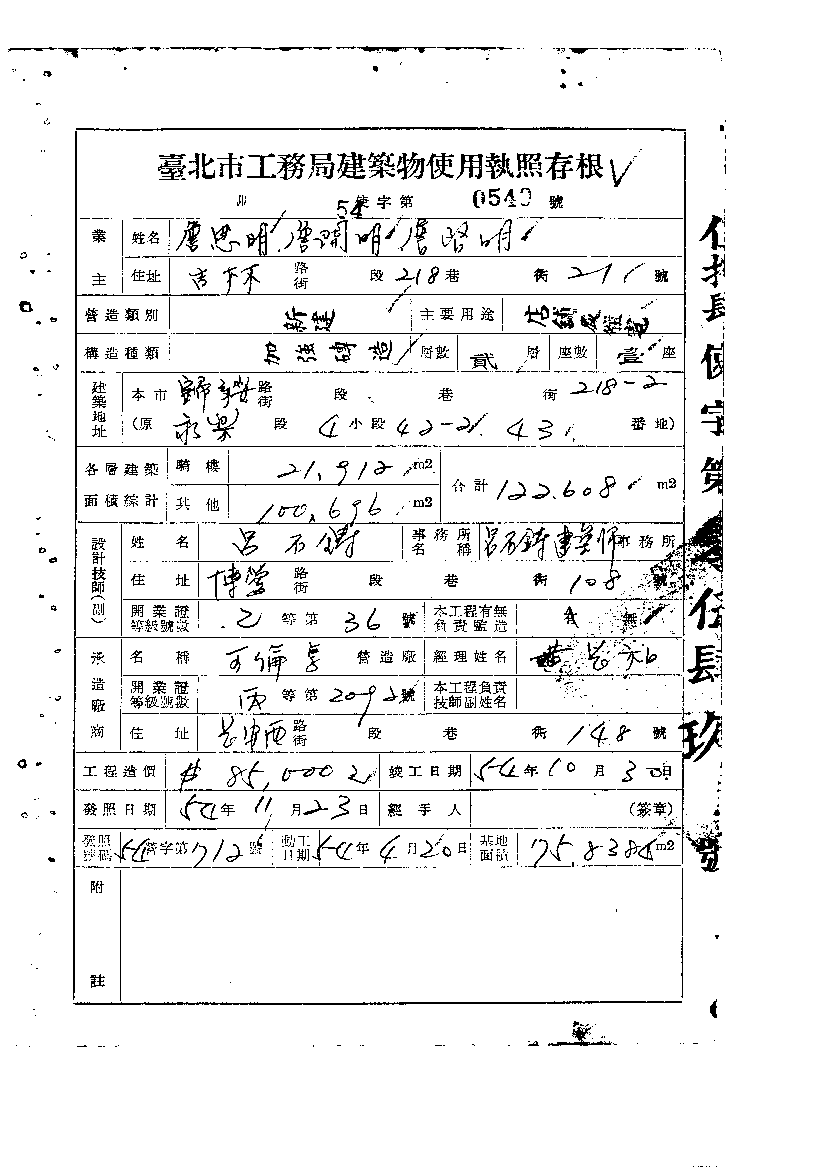 臺北市工務局建築物使用執照存根
54 使字第 0540 號
業主 姓名 詹思明 詹開明 詹啓明
住址 吉林 路街 段 218 巷 街 21 號
營造類別 新建 主要用途 店鋪及住宅
構造種類 加強磚造 層數 貳 層 座數 壹 座
建築地址 本市 歸綏 路街 段 巷 街 218-2
(原 永樂 段 4 小段 42-21. 43 番地)
各層建築面積綜計 騎樓 21,912 m2 合計 122.608 m2
其他 100,696 m2
設計技師(副) 姓名 呂石鑄 事務所名稱 呂石鑄建築師事務所
住址 博愛 路街 段 巷 街 108 號
開業證等級號數 乙 等第 36 號 本工程有無負責監造 有 無
承造廠商 名稱 營造廠 經理姓名
開業證等級號數 丙 等第 2092 號 本工程負責技師副姓名
住址 長安西 路街 段 巷 街 148 號
工程造價 # 85,000 竣工日期 54 年 10 月 30 日
發照日期 54 年 11 月 23 日 經手人 (簽章)
發照號碼 54 營字第 712 號 動工日期 54 年 4 月 20 日 基地面積 75.8385 m2
附註
使字第 伍肆玖 號